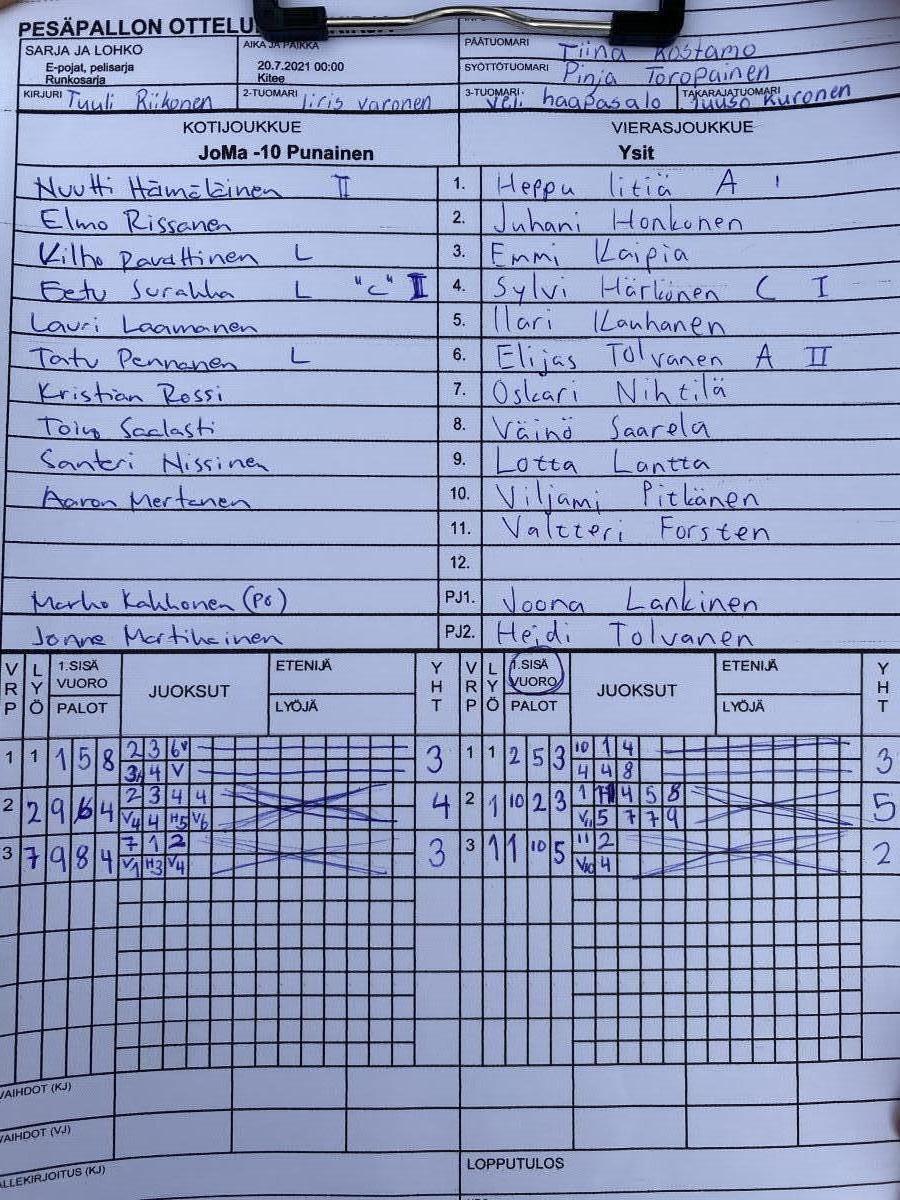 PESÄPALLON OTTELU
SARJA JA LOHKO
E-pojat, pelisarja
Runkosarja
AIKA JA PAIKKA
20.7.2021 00:00
Kitee
PÄÄTUOMARI Tiina Kostamo
SYÖTTÖTUOMARI Pinja Toropainen
KIRJURI Tuuli Riikonen
2-TUOMARI Iiris varonen
3-TUOMARI Veli haapasalo
TAKARAJATUOMARI Juuso Kuronen
KOTIJOUKKUE VIERASJOUKKUE
JoMa -10 Punainen Ysit
Nuutti Hämäläinen II 1. Heppu Iitiä A I
Elmo Rissanen 2. Juhani Honkonen
Vilho Pavattinen L 3. Emmi Kaipia
Eetu Surakka L "C" II 4. Sylvi Härkönen C I
Lauri Laamanen 5. Ilari Kauhanen
Tatu Pennanen L 6. Elijas Tolvanen A II
Kristian Rossi 7. Oskari Nihtilä
Toivo Saalasti 8. Väinö Saarela
Santeri Nissinen 9. Lotta Lantta
Aaron Mertanen 10. Viljami Pitkänen
11. Valtteri Forsten
12.
Marko Kahhonen (PÖ) PJ1. Joona Lankinen
Jonne Martikainen PJ2. Heidi Tolvanen
VRP LYÖ 1.SISÄ VUORO PALOT JUOKSUT ETENIJÄ LYÖJÄ YHT VRP LYÖ 1.SISÄ VUORO PALOT JUOKSUT ETENIJÄ LYÖJÄ YHT
1 1 1 5 8 2 3 6V 3 1 1 2 5 3 10 1 4 3
4 V 4 4 8
2 2 9 6 4 2 3 4 4 4 2 1 10 2 3 1 11 4 5 8 5
V4 4 H5 V6 V11 5 7 7 9
3 7 9 8 4 7 1 2 3 3 11 10 5 11 2 2
V1 H3 V4 V10 4
VAIHDOT (KJ)
VAIHDOT (VJ)
ALLEKIRJOITUS (KJ) LOPPUTULOS